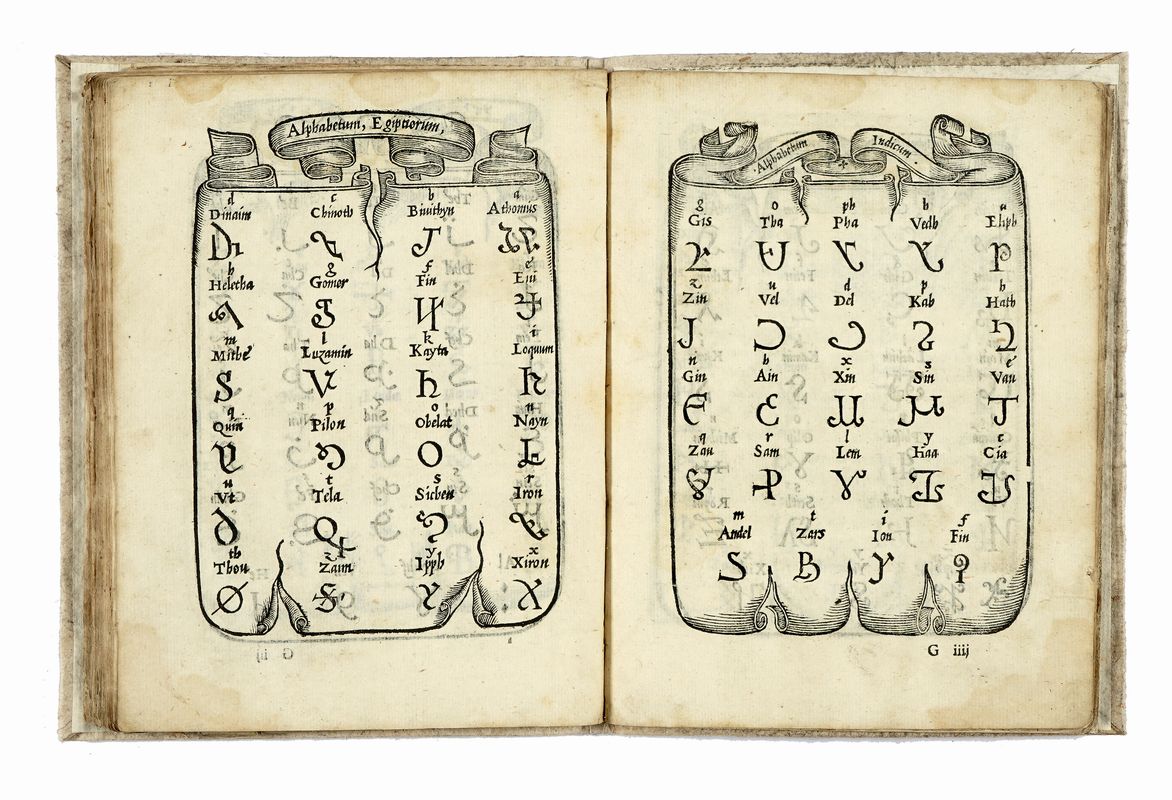 Alphabetum, Egiptiorum,
d c b a
Dinaim Chinoth Binithyn Athomus
h g f e
Heletha Gomor Fin Eni
m l k i
Mithe Luzamin Kayta Loquum
q p o n
Quin Pilon Obelat Nayn
u t s r
Vt Tela Sichen Iron
th z y x
Thou Zaun Ipph Xiron
Alphabetum Indicum.
g o ph b a
Gis Tha Pha Vedh Eliph
z u d p h
Zin Vel Del Kab Hath
n h x s e
Gin Ain Xin Sin Vau
q r l y c
Zau Sam Lem Haa Cia
m t i f
Andel Zars Ion Fin
G iiij